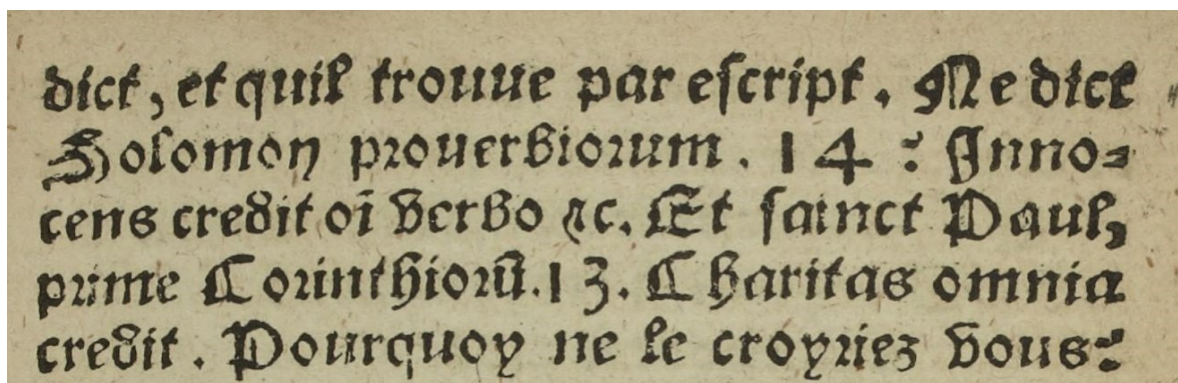 dict, et quil trouue par escript. Ne dict
Solomon prouerbiorum. 14 : Inno=
cens credit oī verbo ⁊c. Et sainct Paul,
prime Corinthiorū. 13. Charitas omnia
credit. Pourquoy ne le croyriez vous?